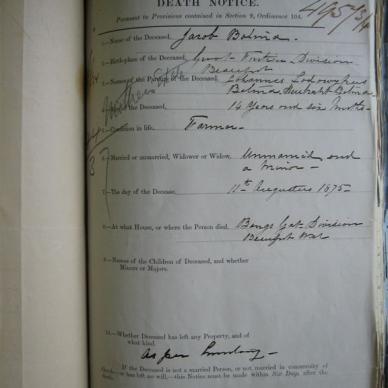 DEATH NOTICE.
Pursuant to Provisions contained in Section 9, Ordinance 104.
1.—Name of the Deceased, Jacob Botma.
2.—Birth-place of the Deceased, Division
Beaufort
3.—Names of the Parents of the Deceased, Johannes Lodewikus
Botma Botma
4.— of the Deceased, 14 Years and six Months
5.—Condition in life, Farmer
6.—Married or unmarried, Widower or Widow, Unmarried and
a Minor
7.—The day of the Decease, 11th 1875
8.—At what House, or where the Person died. Division
Beaufort West
9.—Names of the Children of Deceased, and whether
Minors or Majors.
10.—Whether Deceased has left any Property, and of
what kind.
as per Inventory
If the Deceased is not a married Person, or not married in community of
or has left no will,—this Notice must be made within Six Days after the